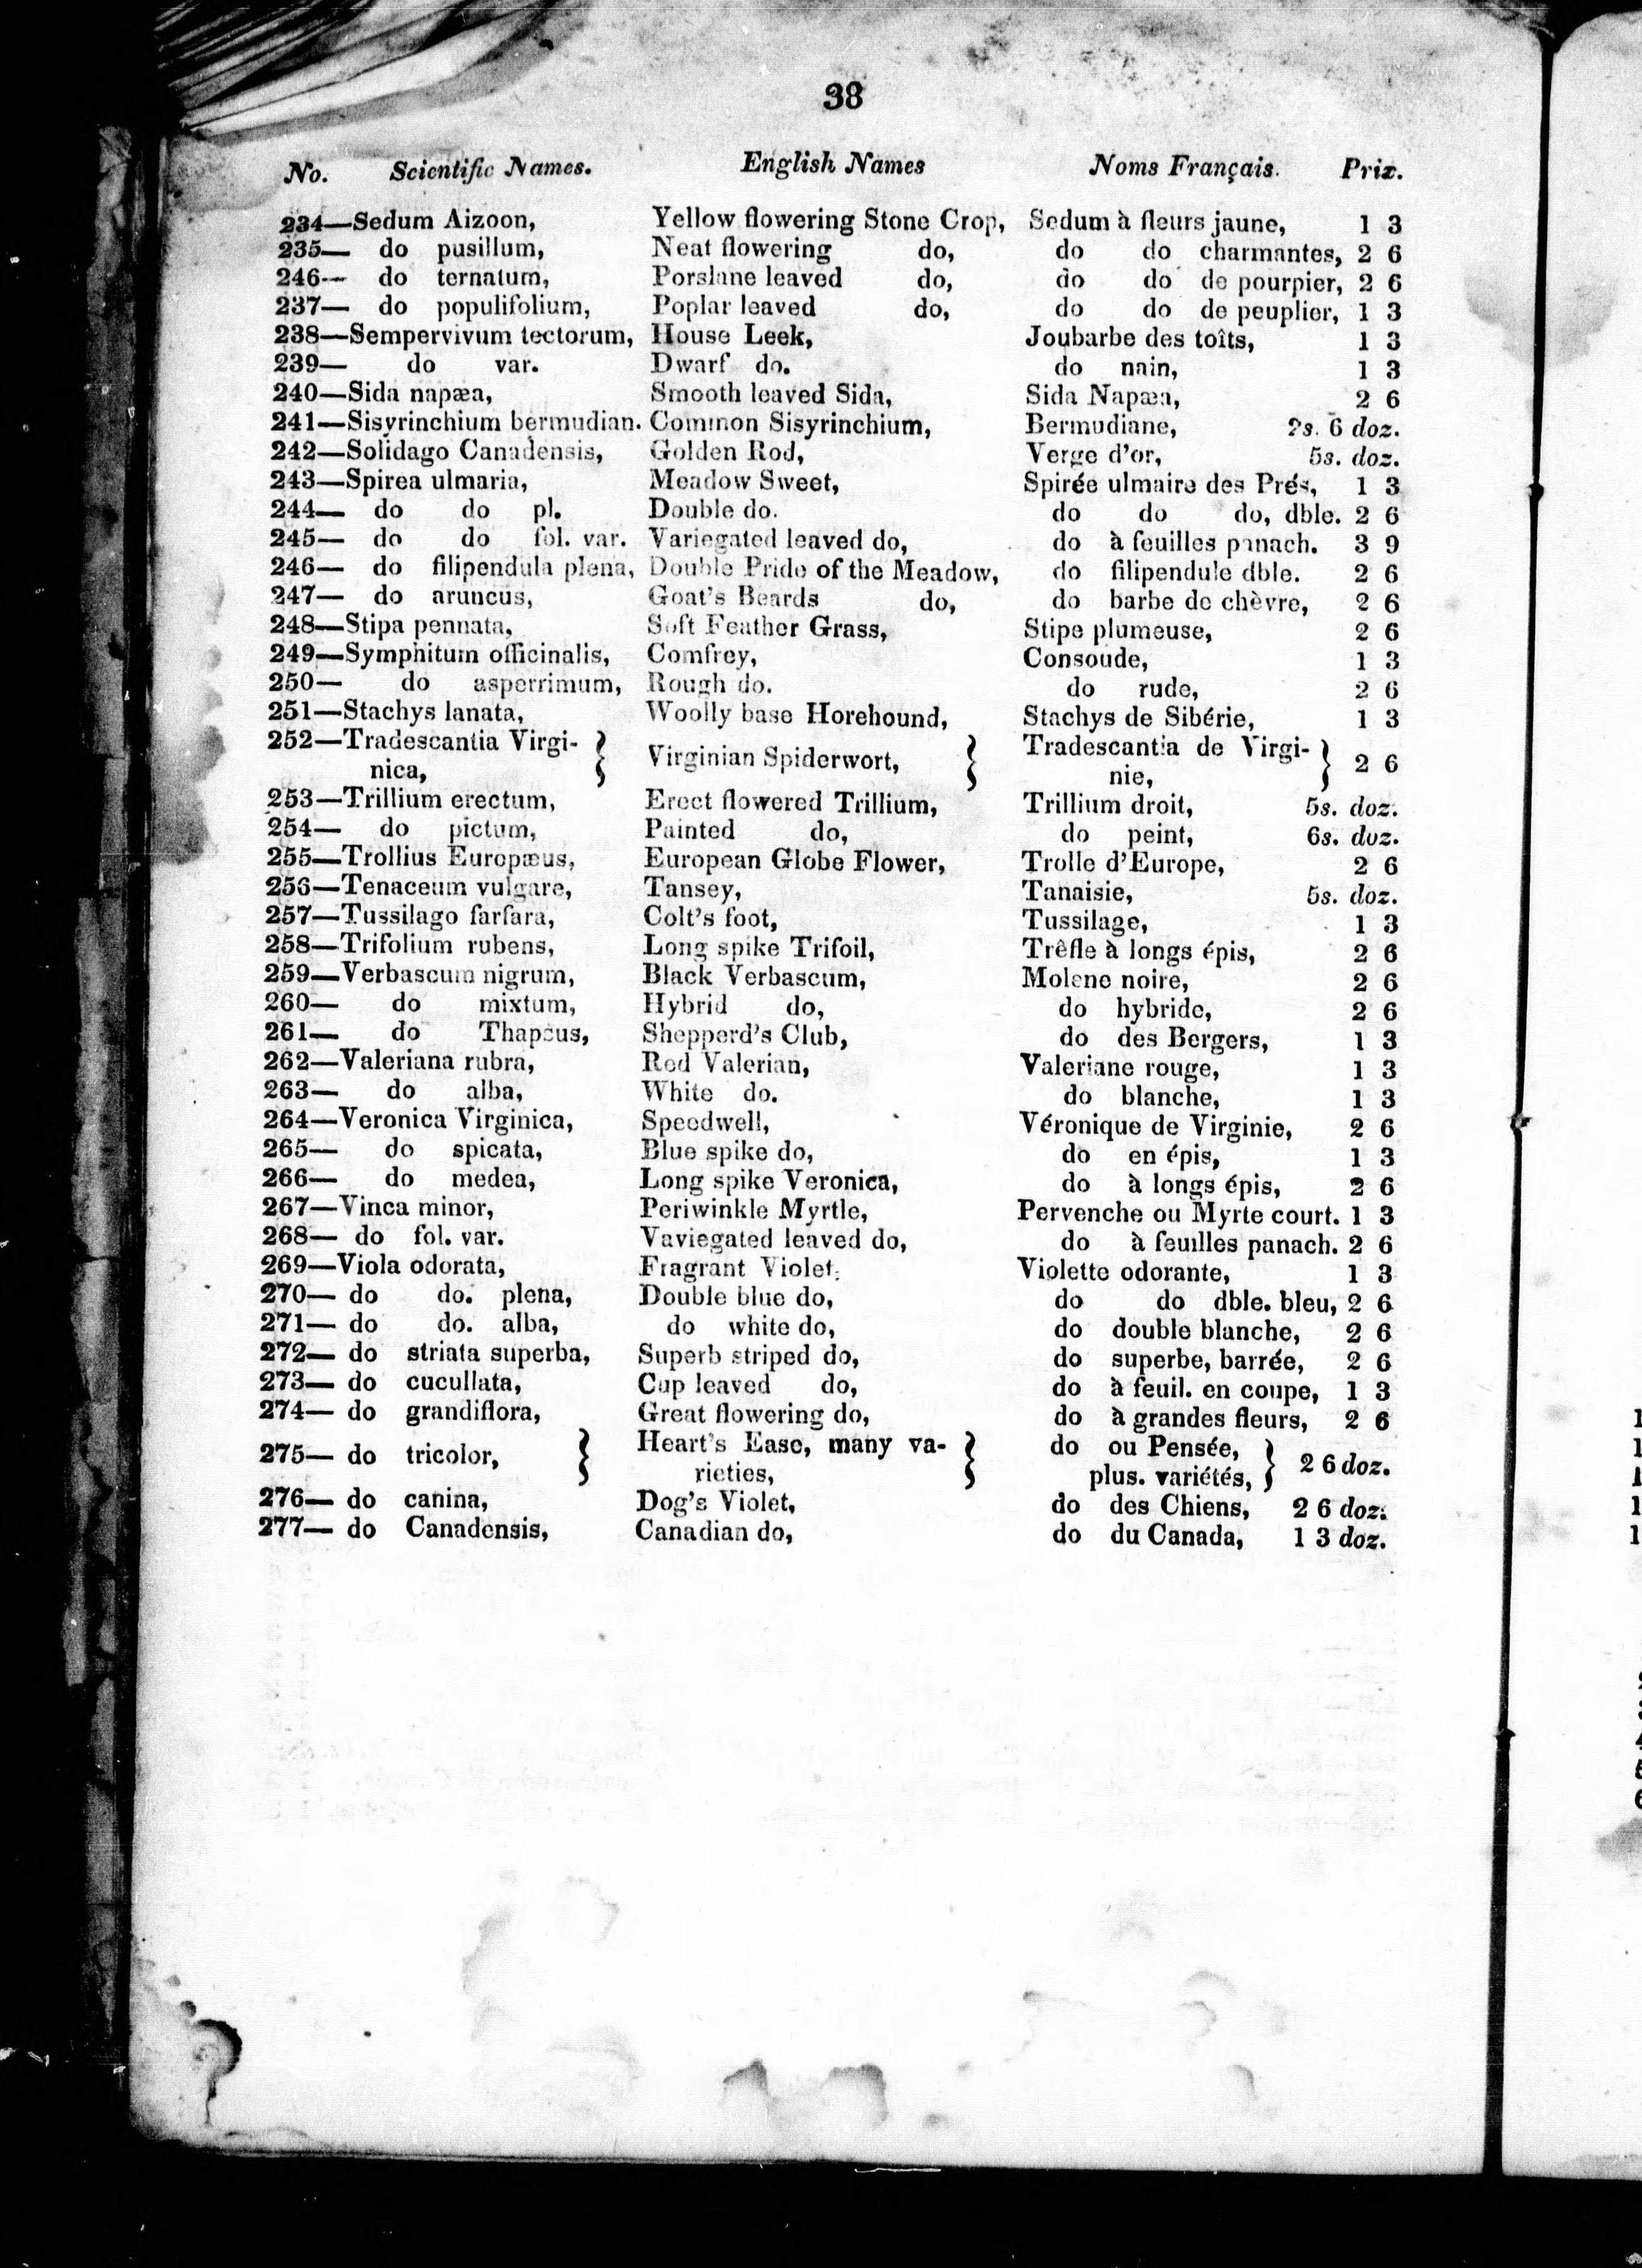 38
No. Scientific Names. English Names Noms Français. Prix.
234—Sedum Aizoon, Yellow flowering Stone Crop, Sedum à fleurs jaune, 1 3
235— do pusillum, Neat flowering do, do do charmantes, 2 6
246— do ternatum, Porslane leaved do, do do de pourpier, 2 6
237— do populifolium, Poplar leaved do, do do de peuplier, 1 3
238—Sempervivum tectorum, House Leek, Joubarbe des toîts, 1 3
239— do var. Dwarf do. do nain, 1 3
240—Sida napæa, Smooth leaved Sida, Sida Napæa, 2 6
241—Sisyrinchium bermudian. Common Sisyrinchium, Bermudiane, 2s. 6 doz.
242—Solidago Canadensis, Golden Rod, Verge d'or, 5s. doz.
243—Spirea ulmaria, Meadow Sweet, Spirée ulmaire des Prés, 1 3
244— do do pl. Double do. do do do, dble. 2 6
245— do do fol. var. Variegated leaved do, do à feuilles panach. 3 9
246— do filipendula plena, Double Pride of the Meadow, do filipendule dble. 2 6
247— do aruncus, Goat's Beards do, do barbe de chèvre, 2 6
248—Stipa pennata, Soft Feather Grass, Stipe plumeuse, 2 6
249—Symphitum officinalis, Comfrey, Consoude, 1 3
250— do asperrimum, Rough do. do rude, 2 6
251—Stachys lanata, Woolly base Horehound, Stachys de Sibérie, 1 3
252—Tradescantia Virgi- } Virginian Spiderwort, } Tradescantia de Virgi- } 2 6
nica, nie,
253—Trillium erectum, Erect flowered Trillium, Trillium droit, 5s. doz.
254— do pictum, Painted do, do peint, 6s. doz.
255—Trollius Europæus, European Globe Flower, Trolle d'Europe, 2 6
256—Tenaceum vulgare, Tansey, Tanaisie, 5s. doz.
257—Tussilago farfara, Colt's foot, Tussilage, 1 3
258—Trifolium rubens, Long spike Trifoil, Trêfle à longs épis, 2 6
259—Verbascum nigrum, Black Verbascum, Molene noire, 2 6
260— do mixtum, Hybrid do, do hybride, 2 6
261— do Thapsus, Shepperd's Club, do des Bergers, 1 3
262—Valeriana rubra, Red Valerian, Valeriane rouge, 1 3
263— do alba, White do. do blanche, 1 3
264—Veronica Virginica, Speedwell, Véronique de Virginie, 2 6
265— do spicata, Blue spike do, do en épis, 1 3
266— do medea, Long spike Veronica, do à longs épis, 2 6
267—Vinca minor, Periwinkle Myrtle, Pervenche ou Myrte court. 1 3
268— do fol. var. Vaviegated leaved do, do à feuilles panach. 2 6
269—Viola odorata, Fragrant Violet. Violette odorante, 1 3
270— do do. plena, Double blue do, do do dble. bleu, 2 6
271— do do. alba, do white do, do double blanche, 2 6
272— do striata superba, Superb striped do, do superbe, barrée, 2 6
273— do cucullata, Cup leaved do, do à feuil. en coupe, 1 3
274— do grandiflora, Great flowering do, do à grandes fleurs, 2 6
275— do tricolor, } Heart's Ease, many va- } do ou Pensée, } 2 6 doz.
rieties, plus. variétés,
276— do canina, Dog's Violet, do des Chiens, 2 6 doz.
277— do Canadensis, Canadian do, do du Canada, 1 3 doz.